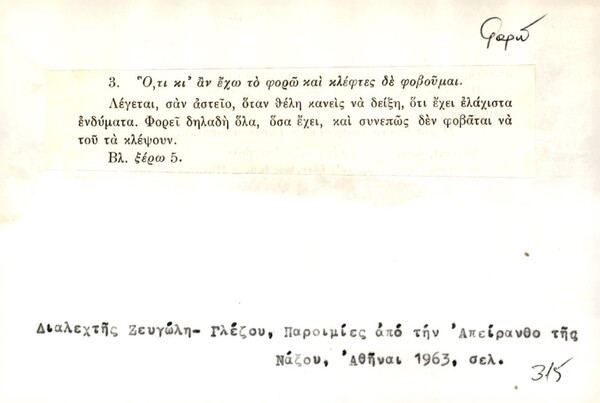 φορῶ
3. Ὅ,τι κι' ἂν ἔχω τὸ φορῶ καὶ κλέφτες δὲ φοβοῦμαι.
Λέγεται, σὰν ἀστεῖο, ὅταν θέλη κανεὶς νὰ δείξη, ὅτι ἔχει ἐλάχιστα
ἐνδύματα. Φορεῖ δηλαδὴ ὅλα, ὅσα ἔχει, καὶ συνεπῶς δὲν φοβᾶται νὰ
τοῦ τὰ κλέψουν.
Βλ. ξέρω 5.
Διαλεχτῆς Ζευγώλη- Γλέζου, Παροιμίες ἀπό τήν Ἀπείρανθο τῆς
Νάξου, Ἀθῆναι 1963, σελ.
315